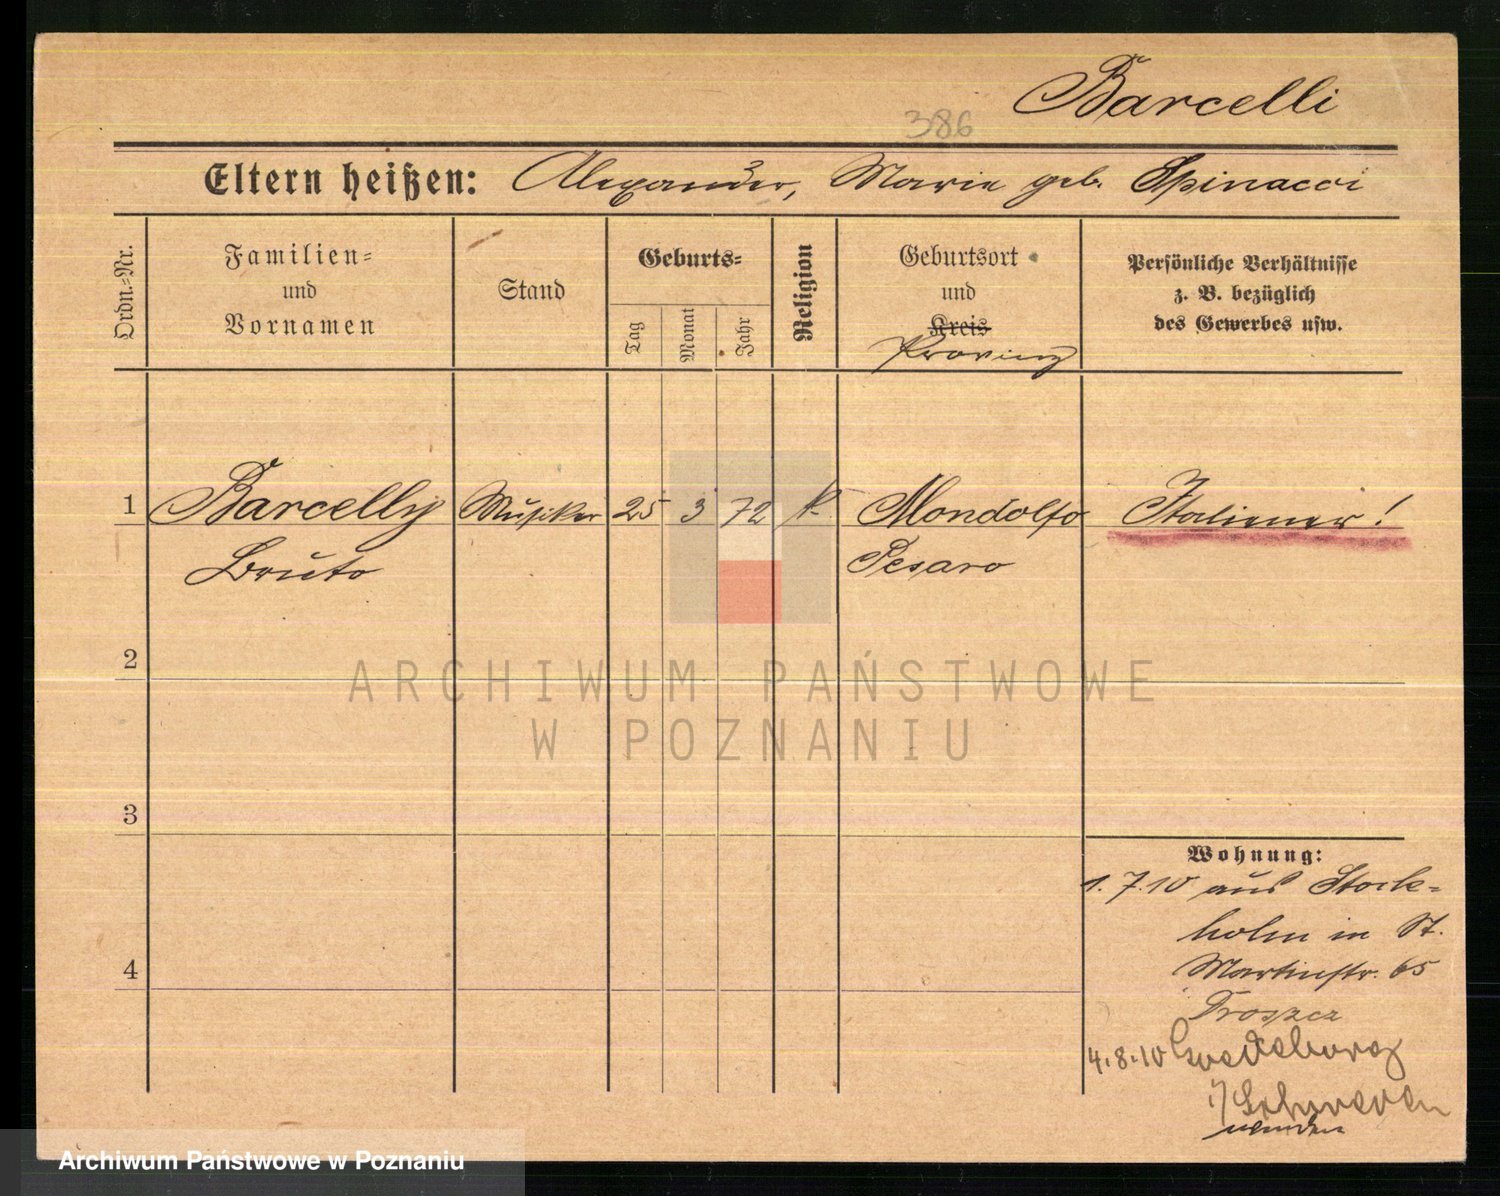 Barcelli
386
Eltern heißen: Alexander, Marie geb. Spinacci
Ordn.-Nr.
Familien-
und
Vornamen
Stand
Geburts-
Tag
Monat
Jahr
Religion
Geburtsort
und
Kreis
Provinz
Persönliche Verhältnisse
z. B. bezüglich
des Gewerbes usw.
1 Barcelly Musiker 25 3 72 k. Mondolfo Italiener!
Bruto Pesaro
2
3
4
Wohnung:
1.7.10 aus Stock-
holm in St.
Martinstr. 65
4.8.10
i/ Schweden
wenden
ARCHIWUM PAŃSTWOWE
W POZNANIU
Archiwum Państwowe w Poznaniu